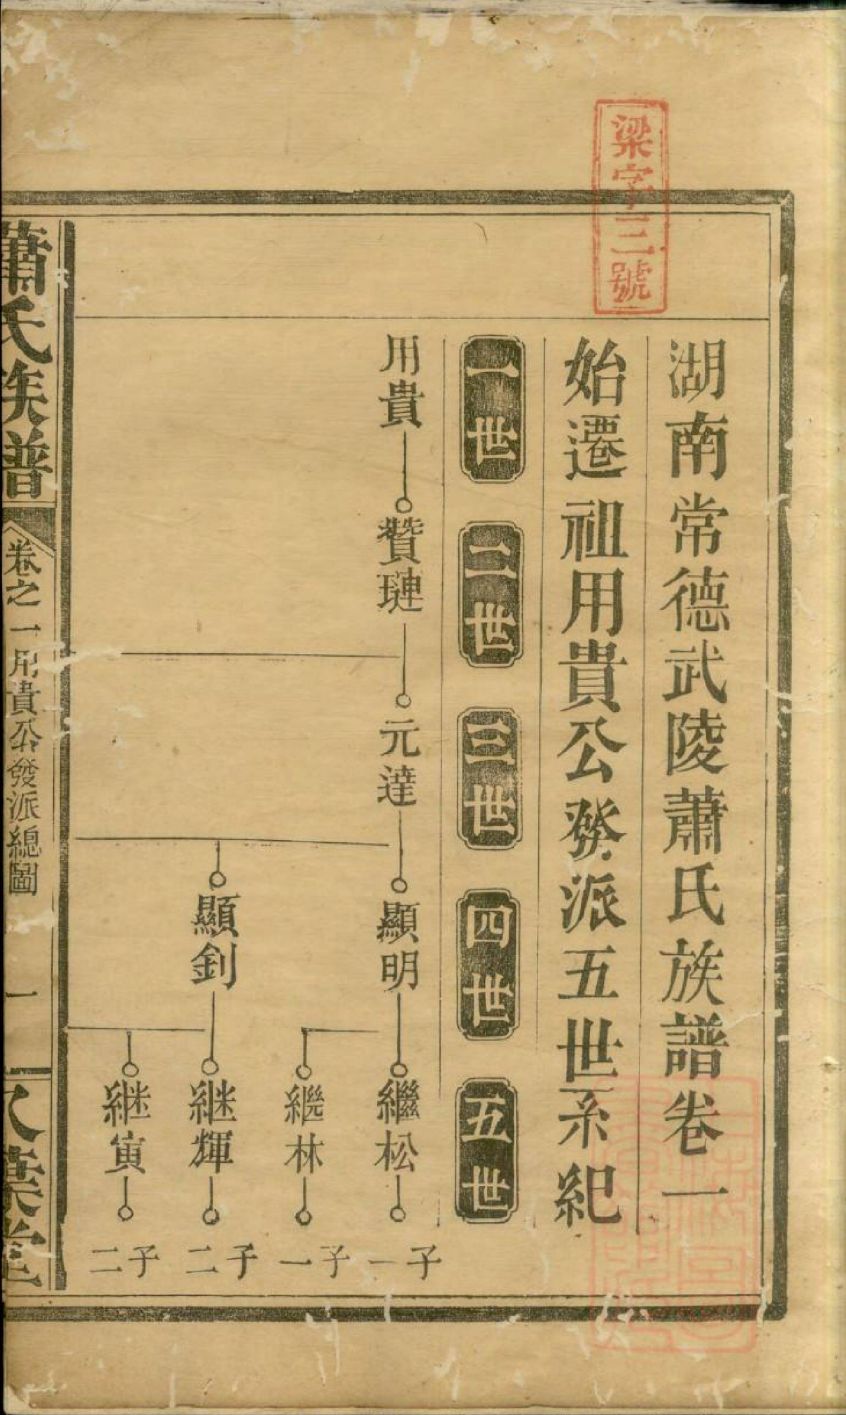 梁字三號
湖南常德武陵蕭氏族譜卷一
始遷祖用貴公發派五世系紀
一世 二世 三世 四世 五世
用貴 贊璉 元達 顯明 繼松 子一
繼林 子一
顯釗 継輝 子二
継寅 子二
蕭氏族譜 卷之一 用貴公發派總圖 一 八葉堂